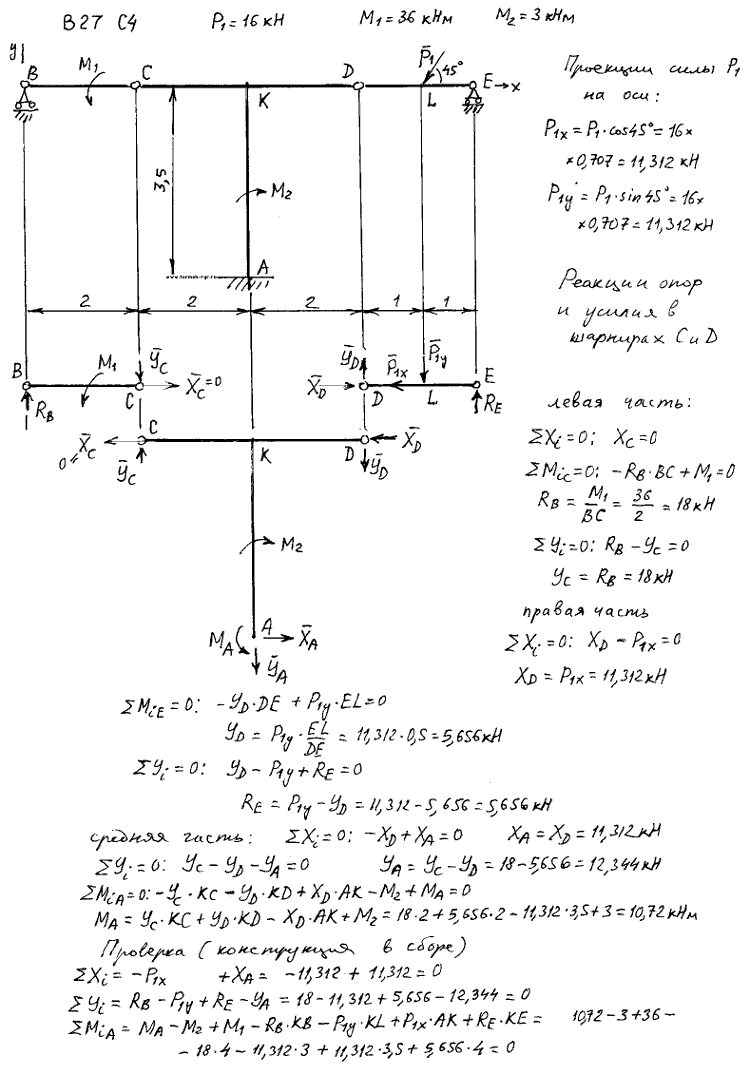 В27 С4 P₁=16кН M₁=36 кНм M₂=3 кНм
y
B M₁ C K D P̄₁ 45° L E x
Проекции силы P₁
на оси:
P₁x=P₁·cos45°=16×
×0,707=11,312 кН
P₁y=P₁·sin45°=16×
×0,707=11,312 кН
3,5
M₂
A
Реакции опор
и усилия в
шарнирах С и D
2 2 2 1 1
B M₁ ȲC C X̄C=0 X̄D ȲD D P̄₁x P̄₁y L E
RB RE
0= X̄C C ȲC K D X̄D ȲD
M₂
MA A X̄A
ȲA
левая часть:
ΣXi=0: XC=0
ΣMiC=0: -RB·BC+M₁=0
RB = M₁/BC = 36/2 = 18кН
ΣYi=0: RB-YC=0
YC = RB = 18кН
правая часть
ΣXi=0: XD - P₁x=0
XD = P₁x = 11,312кН
ΣMiE=0: -YD·DE + P₁y·EL=0
YD = P₁y·EL/DE = 11,312·0,5=5,656кН
ΣYi=0: YD-P₁y+RE=0
RE = P₁y-YD = 11,312-5,656=5,656кН
средняя часть: ΣXi=0: -XD+XA=0 XA=XD=11,312кН
ΣYi=0: YC-YD-YA=0 YA=YC-YD=18-5,656=12,344кН
ΣMiA=0: -YC·KC-YD·KD+XD·AK-M₂+MA=0
MA=YC·KC+YD·KD-XD·AK+M₂=18·2+5,656·2-11,312·3,5+3=10,72кНм
Проверка (конструкция в сборе)
ΣXi=-P₁x +XA= -11,312+11,312=0
ΣYi=RB-P₁y+RE-YA=18-11,312+5,656-12,344=0
ΣMiA=MA-M₂+M₁-RB·KB-P₁y·KL+P₁x·AK+RE·KE= 10,72-3+36-
-18·4-11,312·3+11,312·3,5+5,656·4=0